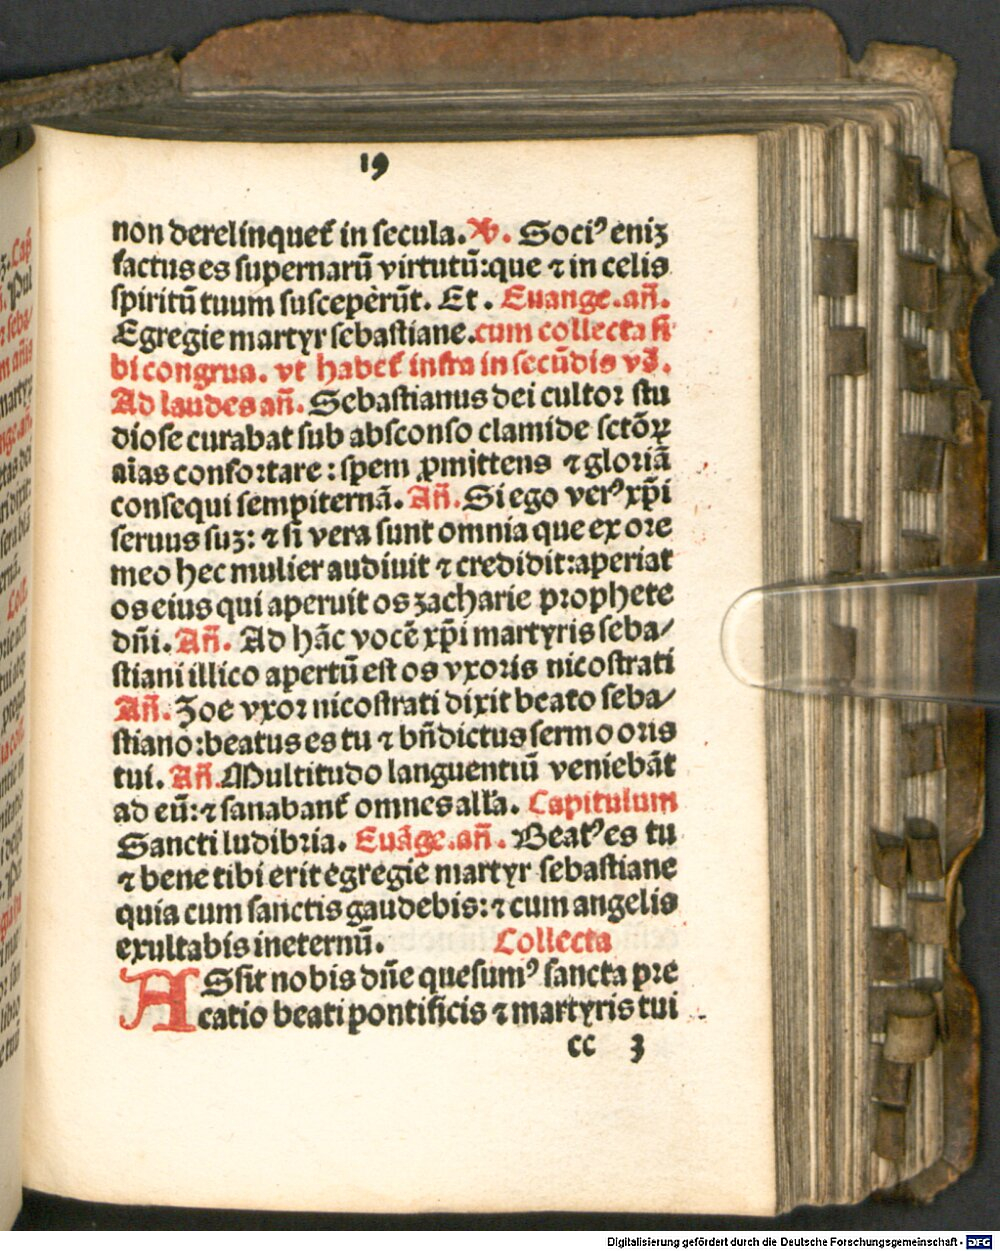 19
non derelinquet᷑ in secula. ꝟ. Soci⁹ eniꝫ
factus es supernarū virtutū: que ⁊ in celis
spiritū tuum susceperūt. Et. Euange. an̄.
Egregie martyr sebastiane. cum collecta si
bi congrua. vt habet᷑ infra in secūdis vꝫ.
Ad laudes an̄. Sebastianus dei cultor stu
diose curabat sub absconso clamide sctōꝝ
aīas confortare: spem ꝓmittens ⁊ gloriā
consequi sempiternā. An̄. Si ego ver⁹ xp̄i
seruus suꝫ: ⁊ si vera sunt omnia que ex ore
meo hec mulier audiuit ⁊ credidit: aperiat
os eius qui aperuit os zacharie prophete
dn̄i. An̄. Ad hāc vocē xp̄i martyris seba/
stiani illico apertū est os vxoris nicostrati
An̄. Zoe vxor nicostrati dixit beato seba/
stiano: beatus es tu ⁊ bn̄dictus sermo oris
tui. An̄. Multitudo languentiū veniebāt
ad eū: ⁊ sanabant᷑ omnes all'a. Capitulum
Sancti ludibria. Euāge. an̄. Beat⁹ es tu
⁊ bene tibi erit egregie martyr sebastiane
quia cum sanctis gaudebis: ⁊ cum angelis
exultabis ineternū. Collecta
ASsit nobis dn̄e quesum⁹ sancta pre
catio beati pontificis ⁊ martyris tui
cc 3
Digitalisierung gefördert durch die Deutsche Forschungsgemeinschaft - DFG